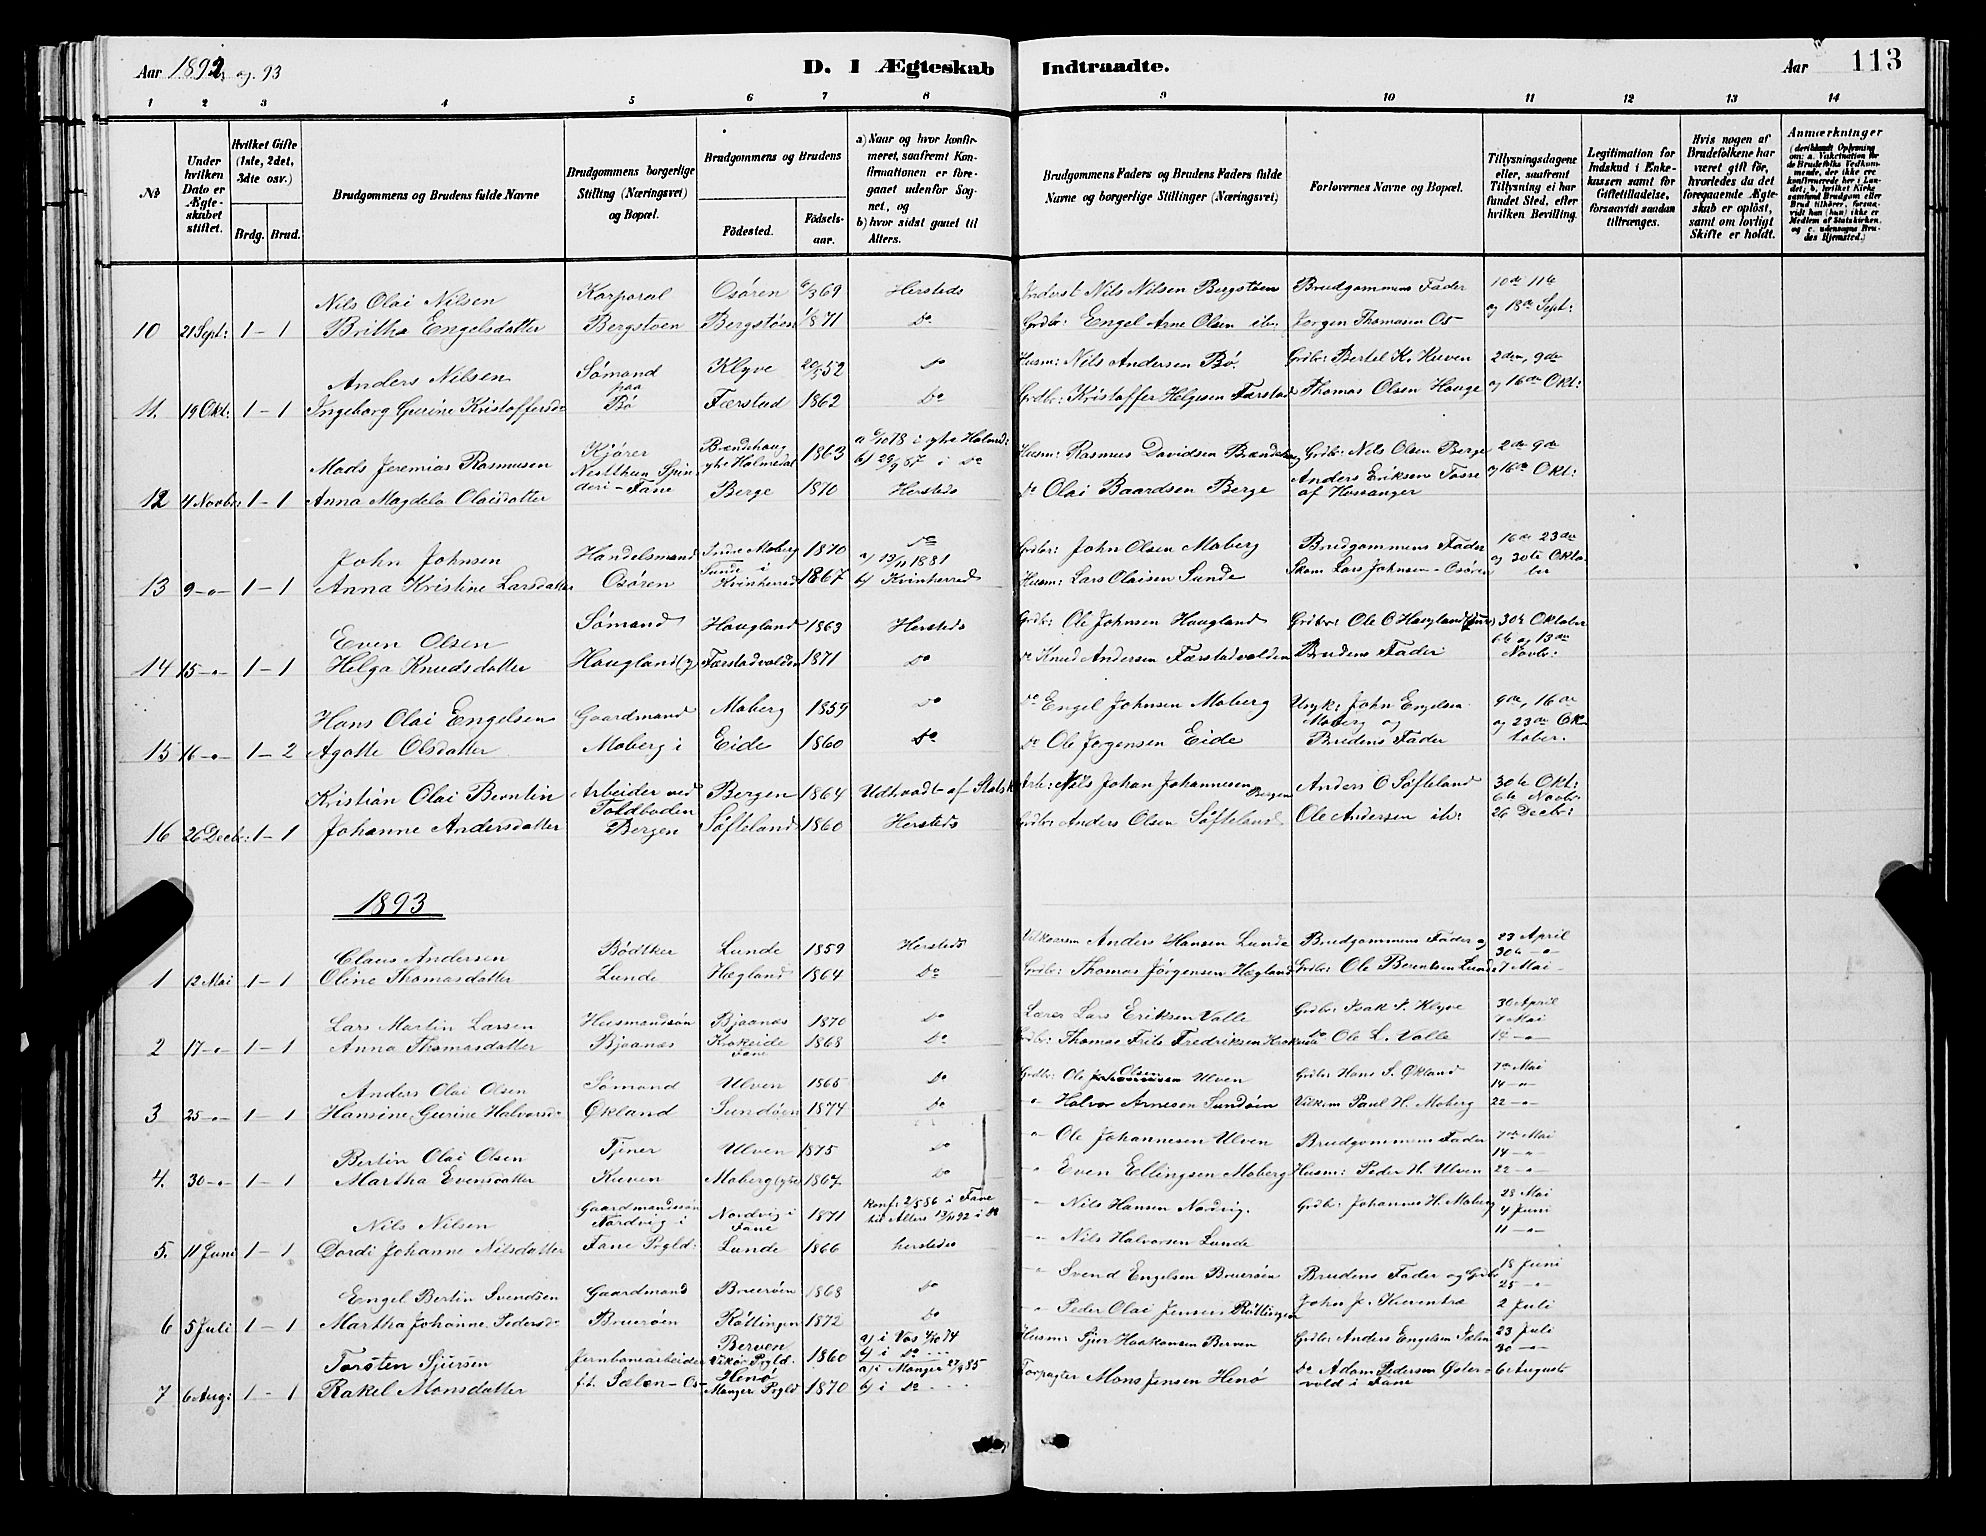 Aar 1892 og 93
D. I Ægteskab Indtraadte.
Aar 113
1 2 3 4 5 6 7 8 9 10 11 12 13 14
№
Under hvilken Dato er Ægteskabet stiftet.
Hvilket Gifte (1ste, 2det, 3die osv.)
Brdg. Brud.
Brudgommens og Brudens fulde Navne
Brudgommens borgerlige Stilling (Næringsvei) og Bopæl.
Brudgommens og Brudens
Födested.
Födselsaar.
a) Naar og hvor konfirmeret, saafremt Konfirmationen er foregaaet udenfor Sognet, og
b) hvor sidst gaaet til Alters.
Brudgommens Faders og Brudens Faders fulde Navne og borgerlige Stillinger (Næringsvei)
Forlovernes Navne og Bopæl.
Tillysningsdagene eller, saafremt Tillysning ei har fundet Sted, efter hvilken Bevilling.
Legitimation for Indskud i Enkekassen samt for Giftetilladelse, forsaavidt saadan tiltrænges.
Hvis nogen af Brudefolkene har været gift før, hvorledes da det foregaaende Ægteskab er oplöst, samt om lovligt Skifte er holdt.
Anmærkninger
Nils Olai Nilsen Korporal Osören 6/3 69 Hersteds Inderst Nils Nilsen Bergstöen Brudgommens Fader 10de 11te
10 21 Sept: 1 - 1 Britha Engelsdatter Bergstöen Bergstöen 1/8 71 Do Grdbr: Engel Arne Olsen ib: Jørgen Thomasen Os og 18de Sept:
Anders Nilsen Sømand paa Klyve 20/5 52 Do Husm: Nils Andersen Bø. Grdbr: Bertel K. Kuven 2den, 9de
11. 19 Okt: 1 - 1 Ingeborg Gurine Kristoffersdr Bø Færstad 1862 Do Grdbr: Kristoffer Helgesen Færstad Thomas Olsen Hauge og 16de Okt:
Mads Jeremias Rasmusen Kjører Brændehaug ytre Holmedal 1863 a) 6/10 78 i ytre Holmed: b) 29/9 87 i Do Husm: Rasmus Davidsen Brændehaug Grdbr: Nils Olsen Berge 2de 9de
12 4 Novbr 1 - 1 Anna Magdela Olaisdatter Nestthun Spinderi - Fane Berge 1870 Hersteds Do Olai Baardsen Berge Anders Eriksen Tosse af Hosanger og 16de Okt:
John Johnsen Handelsmand Indre Moberg 1870 Do Grdbr: John Olsen Moberg Brudgommens Fader 16de 23de
13 9 -"- 1 - 1 Anna Kristine Larsdatter Osören Sunde i Kvinherred 1867 a) 13/11 1881 b) Kvinherred Husm: Lars Olaisen Sunde Skom Lars Johnsen - Osören og 30te Oktober
Even Olsen Sømand Haugland 1863 Hersteds Grdbr: Ole Johnsen Haugland Grdbr: Ole O Haugland 30te Oktober
14 15 -"- 1 - 1 Helga Knudsdatter Haugland Færstadvolden 1871 Do Do Knud Andersen Færstadvolden Brudens Fader 6te og 13de Novbr:
Hans Olai Engelsen Gaardmand Moberg 1859 Do Do Engel Johnsen Moberg Ungk: John Engelsen Moberg og 9de, 16de
15 16 -"- 1 - 2 Agatte Olsdatter Moberg i Eide 1860 Do Do Ole Jørgensen Eide Brudens Fader og 23de Oktober.
Kristian Olai Berntin Arbeider ved Bergen 1864 Udtraadt af Statsk Arb: Nils Johan Johannesen Bergen Anders O Søfteland 30te Okt: 6te Novbr:
16 26 Decbr: 1 - 1 Johanne Andersdatter Toldboden Bergen Søfteland 1860 Hersteds Grdbr: Anders Olsen Søfteland Ole Andersen ib: 26 Decbr:
1893
Claus Andersen Bødtker Lunde 1859 Hersteds Anders Hansen Lunde Brudgommens Fader og 23 April 30te -"-
1 12 Mai 1 - 1 Oline Thomasdatter Lunde Hægland 1864 Do Grdbr: Thomas Jørgensen Hægland Grdbr: Ole Berentsen Lunde 7 Mai
Lars Martin Larsen Husmandssøn Bjaanæs 1870 Do Lærer Lars Eriksen Valle Grdbr Isak I. Klyve 30 April 7 Mai
2 17 -"- 1 - 1 Anna Thomasdatter Bjaanæs Krokeide Fane 1868 Do Grdbr: Thomas Frits Fredriksen Krokeide Do Ole L. Valle 14 -"-
Anders Olai Olsen Sømand Ulven 1865 Do Grdbr: Ole Olsen Ulven Grdbr Hans S. Økland 7de Mai 14 -"-
3 25 -"- 1 - 1 Hansine Gurine Halvorsdr Økland Sundøen 1874 Do " Halvor Arnesen Sundøen Paul H. Moberg 22 -"-
Bertin Olai Olsen Tjener Ulven 1875 Do " Ole Johannesen Ulven Brudgommens Fader 7de Mai 14 -"-
4. 30 -"- 1 - 1 Martha Evensdatter Kuven Moberg 1867 Do " Even Ellingsen Moberg Husm: Peder H. Ulven 22 -"-
Nils Nilsen Gaardmandssøn Nordvig i Nordvig i Fane 1871 Konf: 2/5 86 i Fane til Alters 13/11 92 i Do " Nils Hansen Nordvig. Grdbr: Johannes H. Moberg 28 Mai 4 Juni
5. 11 Juni 1 - 1 Dordi Johanne Nilsdatter Fane Prgld: Lunde 1866 hersteds " Nils Halvorsen Lunde 11 -"-
Engel Bertin Svendsen Gaardmand Bruerøen 1868 Do " Svend Engelsen Bruerøen Brudens Fader og Grdbr 18 Juni 25 -"-
6 5 Juli 1 - 1 Martha Johanne Pedersdr Bruerøen Røttingen 1872 Do " Peder Olai Jensen Røttingen John J. 2 Juli
Torsten Sjursen Jernbanearbeider Berven Vikør Prgld. 1860 a) i Vos 4/10 74 b) i Do Husm: Sjur Haakonsen Berven Grdbr Anders Engelsen Sælen 23 Juli 30 -"-
7 6 Aug: 1 - 1 Rakel Monsdatter f.t. Sælen - Os Henø Manger Prgld 1870 a) i Manger 27/9 85 b) i Do Forpagter Mons Jensen Henø Do Adam Pedersen Østervold i Fane 6 August